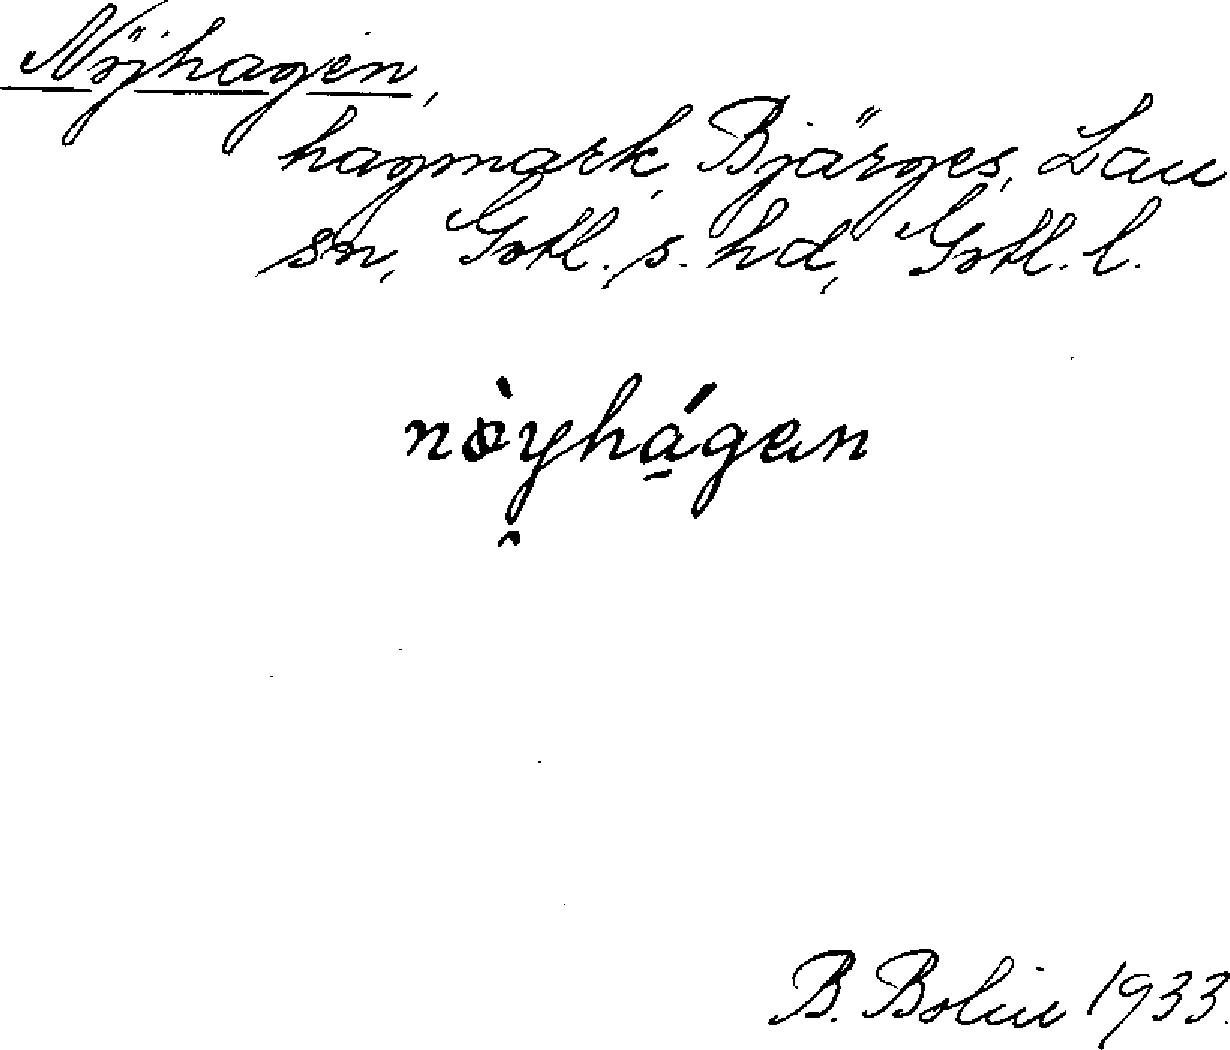 Nöjhagen,
hagmark, Bjärges, Lau
sn, Gotl. s. hd, Gotl. l.
nòyhágen
B. Bolin 1933.